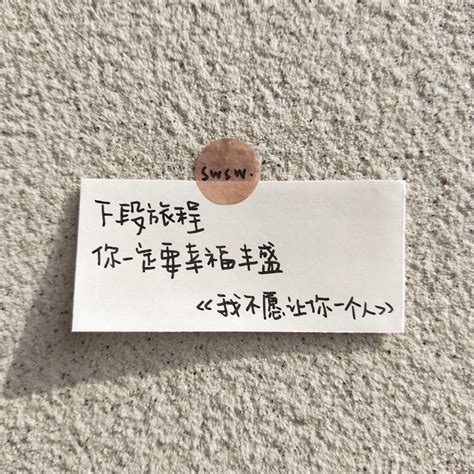 swsw.
下段旅程
你一定要幸福丰盛
<<我不愿让你一个人>>